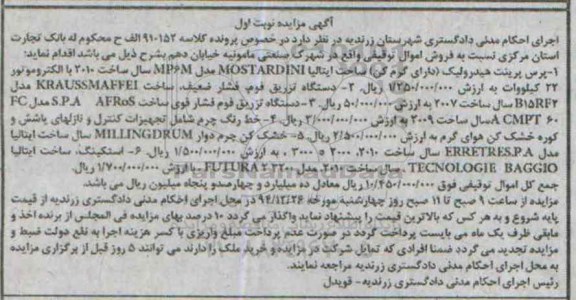 آگهی مزایده نوبت اول
اجرای احکام مدنی دادگستری شهرستان زرندیه در نظر دارد در خصوص پرونده کلاسه ۹۱۰۱۵۲ الف ح محکوم له بانک تجارت
استان مرکزی نسبت به فروش اموال توقیفی واقع در شهرک صنعتی مامونیه خیابان دهم بشرح ذیل می باشد اقدام نماید:
۱- پرس پرینت هیدرولیک (دارای گرم کن) ساخت ایتالیا MOSTARDINI مدل MP۶M سال ساخت ۲۰۱۰ با الکتروموتور
۲۲ کیلووات به ارزش ۱/۲۵۰/۰۰۰/۰۰۰ ریال. ۲- دستگاه تزریق فوم، فشار ضعیف، ساخت KRAUSSMAFFEI مدل
B۱۵RF۲ سال ساخت ۲۰۰۷ به ارزش ۵۰/۰۰۰/۰۰۰ ریال. ۳- دستگاه تزریق فوم فشار قوی ساخت S.P.A AFROS مدل FC
A CMPT ۶۰ سال ساخت ۲۰۰۹ به ارزش ۳/۰۰۰/۰۰۰/۰۰۰ ریال. ۴- خط رنگ چرم شامل تجهیزات کنترل و نازلهای پاشش و
کوره خشک کن هوای گرم به ارزش ۲/۵۰۰/۰۰۰/۰۰۰ ریال. ۵- خشک کن چرم دوار MILLINGDRUM سال ساخت ایتالیا
مدل ERRETRES.P.A سال ساخت ۲۰۱۰، ۲۰۰۰ × ۳۰۰۰، به ارزش ۱/۵۰۰/۰۰۰/۰۰۰ ریال. ۶- استکینگ، ساخت ایتالیا
TECNOLOGIE BAGGIO سال ساخت ۲۰۱۰ مدل FUTURA ۲ ۳۲۰۰ با ارزش ۱/۷۰۰/۰۰۰/۰۰۰ ریال.
جمع کل اموال توقیفی فوق ۱۰/۴۵۰/۰۰۰/۰۰۰ ریال معادل ده میلیارد و چهارصد و پنجاه میلیون ریال می باشد.
مزایده از ساعت ۹ صبح تا ۱۱ صبح روز چهارشنبه مورخه ۹۴/۱۲/۲۶ در محل اجرای احکام مدنی دادگستری زرندیه از قیمت
پایه شروع و به هر کس که بالاترین قیمت را پیشنهاد نماید واگذار می گردد ۱۰ درصد بهای مزایده فی المجلس از برنده اخذ و
مابقی ظرف یک ماه می بایست پرداخت گردد در صورت عدم پرداخت مبلغ واریزی با کسر هزینه اجرا به نفع دولت ضبط و
مزایده تجدید می گردد ضمنا افرادی که تمایل شرکت در مزایده و خرید ملک را دارند می توانند ۵ روز قبل از برگزاری مزایده
به محل اجرای احکام مدنی دادگستری زرندیه مراجعه نمایند.
رئیس اجرای احکام مدنی دادگستری زرندیه - قویدل